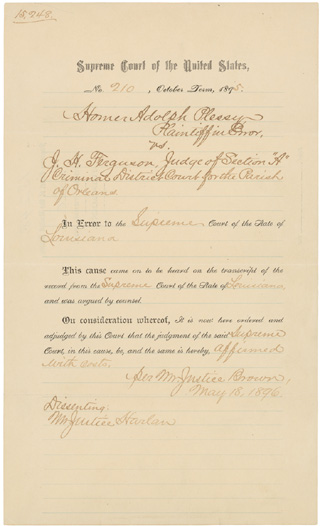 15,248.
Supreme Court of the United States,
No. 210, October Term, 1895.
Homer Adolph Plessy,
Plaintiff in Error,
vs.
J. H. Ferguson, Judge of Section "A"
Criminal District Court for the Parish
of Orleans
In Error to the Supreme Court of the State of
Louisiana
This cause came on to be heard on the transcript of the
record from the Supreme Court of the State of Louisiana
and was argued by counsel.
On consideration whereof, It is now here ordered and
adjudged by this Court that the judgment of the said Supreme
Court, in this cause, be, and the same is hereby, affirmed
with costs.
Per Mr. Justice Brown,
May 18, 1896.
Dissenting:
Mr. Justice Harlan